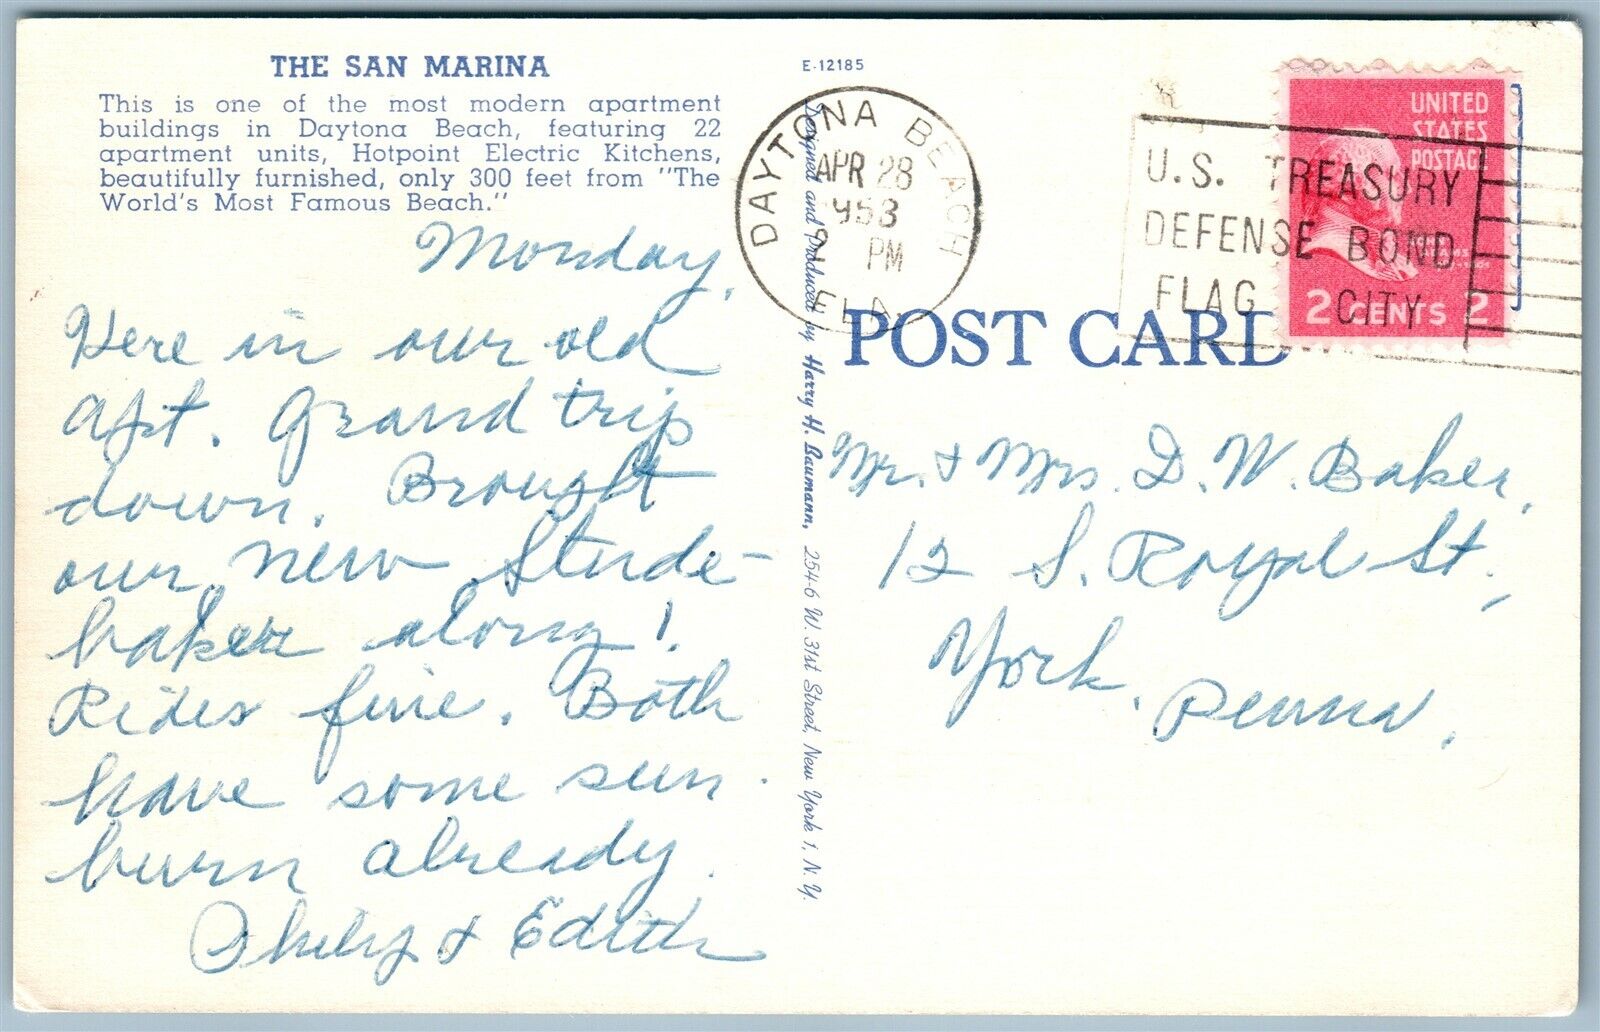 THE SAN MARINA
This is one of the most modern apartment
buildings in Daytona Beach, featuring 22
apartment units, Hotpoint Electric Kitchens,
beautifully furnished, only 300 feet from "The
World's Most Famous Beach."
Monday.
Here in our old
apt. Grand trip
down. Brought
our new Stude-
baker along!
Rides fine. Both
have some sun
burn already.
& Edith
E-12185
Designed and Produced by Harry H. Baumann, 254-6 W. 31st Street, New York 1, N. Y.
DAYTONA BEACH
APR 28
1953
PM
FLA
U.S. TREASURY
DEFENSE BOND
FLAG CITY
UNITED
STATES
POSTAGE
2 CENTS 2
POST CARD
Mr. & Mrs. D. W. Baker,
12 S. Royal St.,
York, Penna.